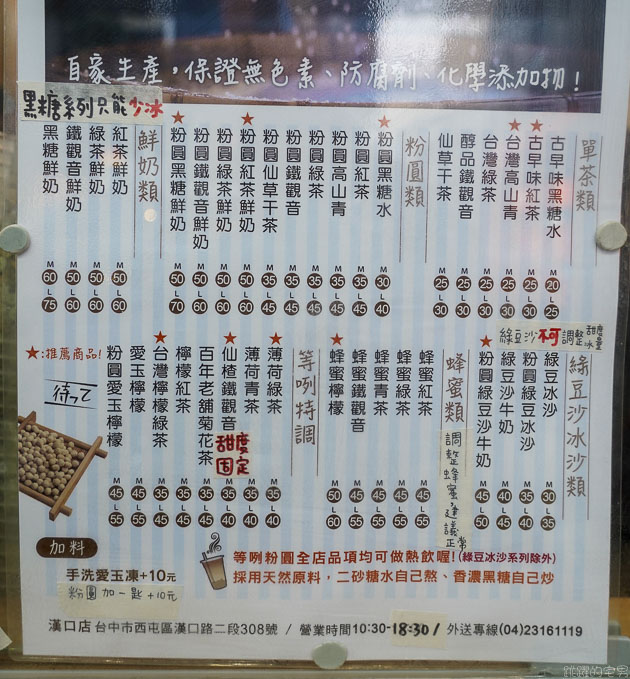 自家生產，保證無色素、防腐劑、化學添加物！
黑糖系列只能少冰
單茶類
★古早味黑糖水 M 20 L 25
★古早味紅茶 M 25 L 30
★台灣高山青 M 25 L 30
台灣綠茶 M 25 L 30
醇品鐵觀音 M 25 L 30
仙草干茶 M 25 L 30
粉圓類
★粉圓黑糖水 M 30 L 40
粉圓紅茶 M 35 L 45
粉圓高山青 M 35 L 45
粉圓綠茶 M 35 L 45
粉圓鐵觀音 M 35 L 45
粉圓仙草干茶 M 35 L 45
★粉圓紅茶鮮奶 M 50 L 60
粉圓綠茶鮮奶 M 50 L 60
粉圓鐵觀音鮮奶 M 50 L 60
★粉圓黑糖鮮奶 M 50 L 70
鮮奶類
紅茶鮮奶 M 50 L 60
綠茶鮮奶 M 50 L 60
鐵觀音鮮奶 M 50 L 60
黑糖鮮奶 M 60 L 75
綠豆沙可調整甜度冰量
綠豆沙冰沙類
綠豆冰沙 M 30 L 35
粉圓綠豆冰沙 M 35 L 40
綠豆沙牛奶 M 40 L 50
★粉圓綠豆沙牛奶 M 45 L 50
蜂蜜類
調整蜂蜜建議正常
蜂蜜紅茶 M 45 L 55
蜂蜜綠茶 M 45 L 55
蜂蜜青茶 M 45 L 55
蜂蜜鐵觀音 M 45 L 55
★蜂蜜檸檬 M 50 L 60
等咧特調
★薄荷綠茶 M 35 L 40
薄荷青茶 M 35 L 40
★仙楂鐵觀音 甜度固定 M 35 L 40
百年老舖菊花茶 M 35 L 45
檸檬紅茶 M 35 L 45
★台灣檸檬綠茶 M 35 L 45
愛玉檸檬 M 45 L 55
粉圓愛玉檸檬 M 45 L 55
★:推薦商品!
待って
加料
手洗愛玉凍+10元
粉圓加一匙+10元
等咧粉圓全店品項均可做熱飲喔!(綠豆冰沙系列除外)
採用天然原料，二砂糖水自己熬、香濃黑糖自己炒
漢口店 台中市西屯區漢口路二段308號 / 營業時間10:30-18:30 / 外送專線(04)23161119
跳躍的宅男